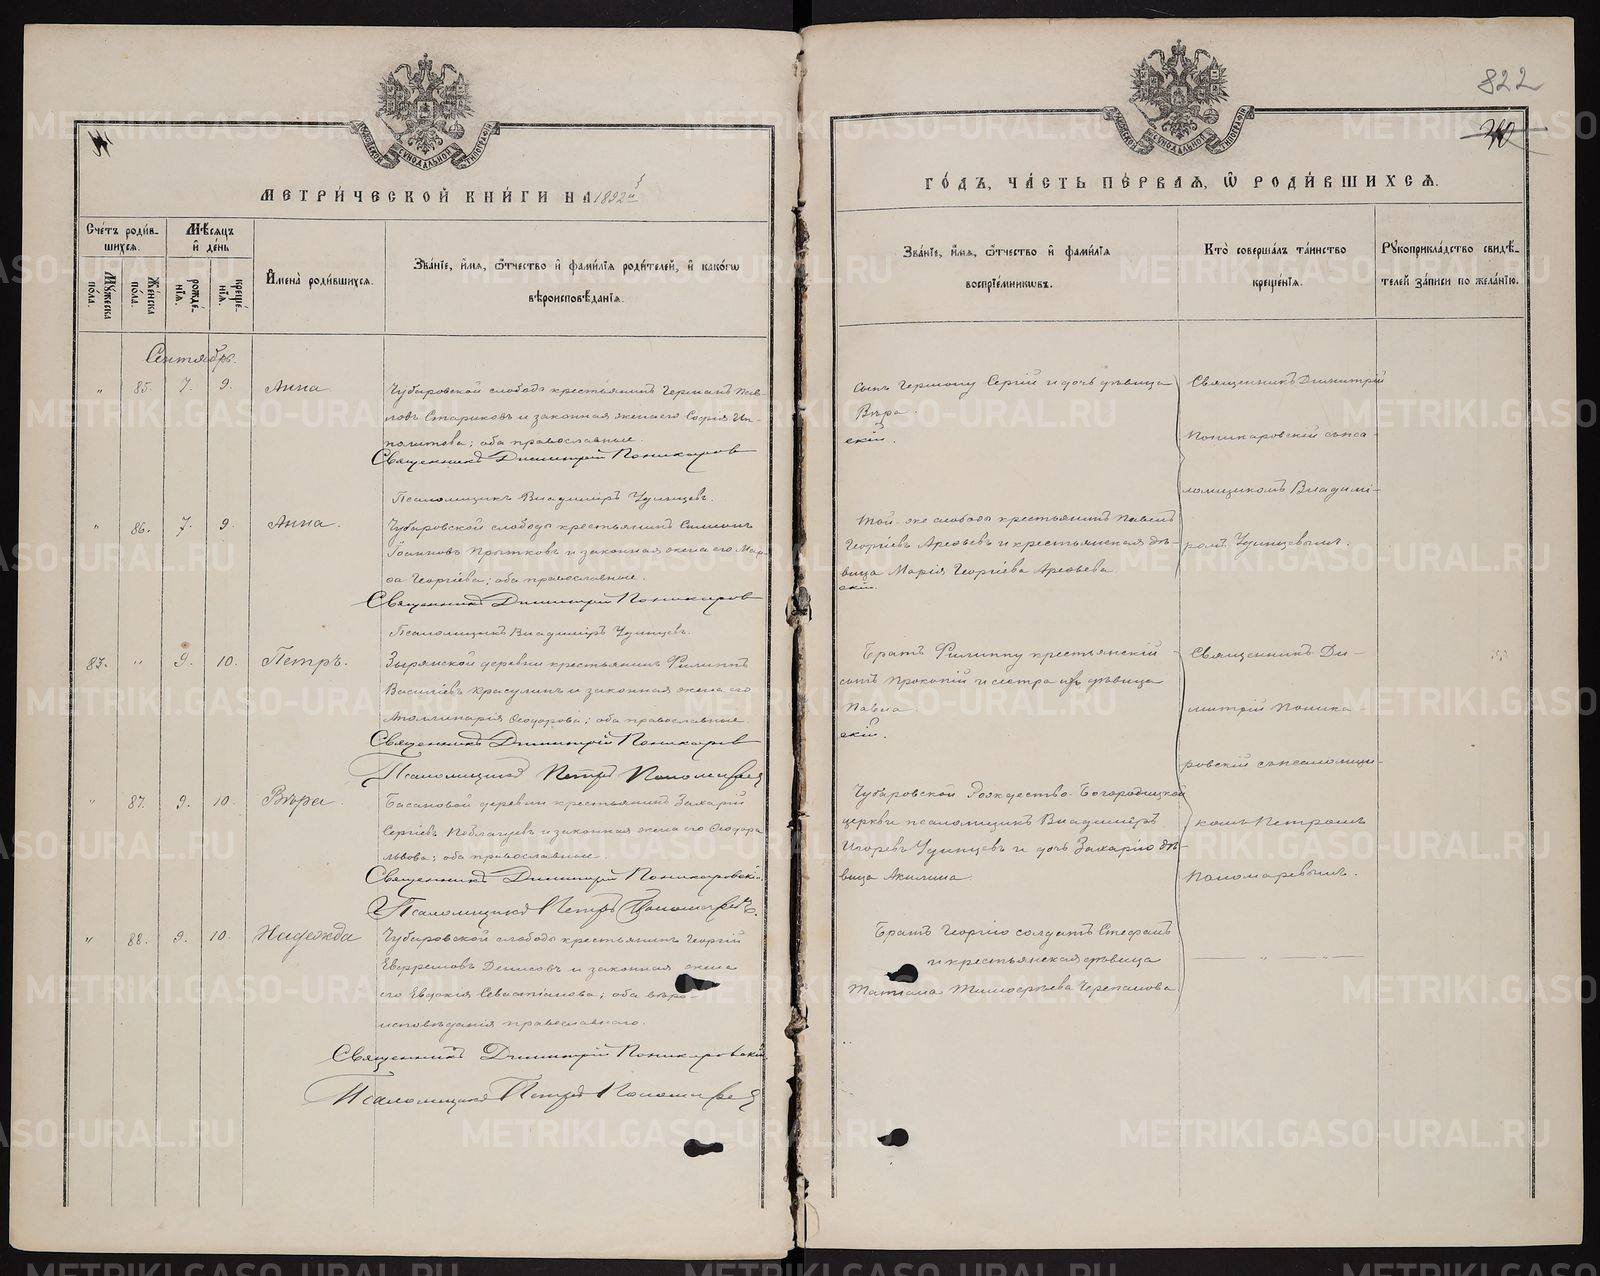 822
МЕТРИ́ЧЕСКОЙ КНИ́ГИ НА 1892й
ГО́ДЪ, ЧА́СТЬ ПЕ́РВАѦ, Ѿ РОДИ́ВШИХСѦ.
Сче́тъ роди́в-
шихсѧ.
Мѣ́сѧцъ
и҆ де́нь
Мꙋжеска
пола.
Женска
пола.
рожде́-
нїѧ.
креще́-
нїѧ.
И҆мена̀ роди́вшихсѧ.
Зва́нїе, и҆́мѧ, ѻ҆́тчество и҆ фами́лїѧ роди́телей, и҆ како́гѡ
вѣроисповѣ́данїѧ.
Зва́нїе, и҆́мѧ, ѻ҆́тчество и҆ фами́лїѧ
воспрїе́мникѡвъ.
Кто̀ соверша́лъ та́инство
креще́нїѧ.
Рꙋкоприкла́дство свидѣ́-
телей за́писи по жела́нїю.
Сентябрь.
" 85. 7. 9. Анна
Чубаровской слободы крестьянинъ Германъ Пав-
ловъ Стариковъ и законная жена его Софія Ип-
политова; оба православные.
Священникъ Димитрій Поникаров
Псаломщикъ Владиміръ Удинцевъ.
Сынъ Герману Сергій и дочь дѣвица
Вѣра.
скій.
Священникъ Димитрій
Поникаровскій съ пса-
ломщикомъ Владимі-
ромъ Удинцевымъ.
" 86. 7. 9. Анна.
Чубаровской слободы крестьянинъ Симеонъ
Іоанновъ Прытковъ и законная жена его Мар-
ѳа Георгіева; оба православные.
Священникъ Димитрій Поникаров
Псаломщикъ Владиміръ Удинцевъ.
Той-же слободы крестьянинъ Павелъ
Георгіевъ Арефьевъ и крестьянская дѣ-
вица Марія Георгіева Арефьева.
скій.
87. " 9. 10. Петръ.
Зырянской деревни крестьянинъ Филиппъ
Васильевъ Красулинъ и законная жена его
Аполлинарія Ѳеодорова; оба православные.
Священникъ Димитрій Поникаров
Псаломщикъ Петръ Пономарев
Братъ Филиппу крестьянскій
сынъ Прокопій и сестра его дѣвица
Павла.
скій.
Священникъ Ди-
митрій Поника-
ровскій съ псаломщи-
комъ Петромъ
Пономаревымъ.
" 87. 9. 10. Вѣра.
Басановой деревни крестьянинъ Захарій
Сергіевъ и законная жена его Ѳеодора
Львова; оба православные.
Священникъ Димитрій Поникаровскій.
Псаломщикъ Петръ Пономаревъ.
Чубаровской Рождество-Богородицкой
церкви псаломщикъ Владиміръ
Игоревъ Удинцевъ и дочь Захарію дѣ-
вица Акилина.
" 88. 9. 10. Надежда
Чубаровской слободы крестьянинъ Георгій
Евфремовъ Денисовъ и законная жена
его Евдокія Севастіанова; оба вѣро-
исповѣданія православнаго.
Священникъ Димитрій Поникаровскій
Псаломщикъ Петръ Пономарев
Братъ Георгію солдатъ Стефанъ
и крестьянская дѣвица
Татіана Тимофеева Черепанова
— " —